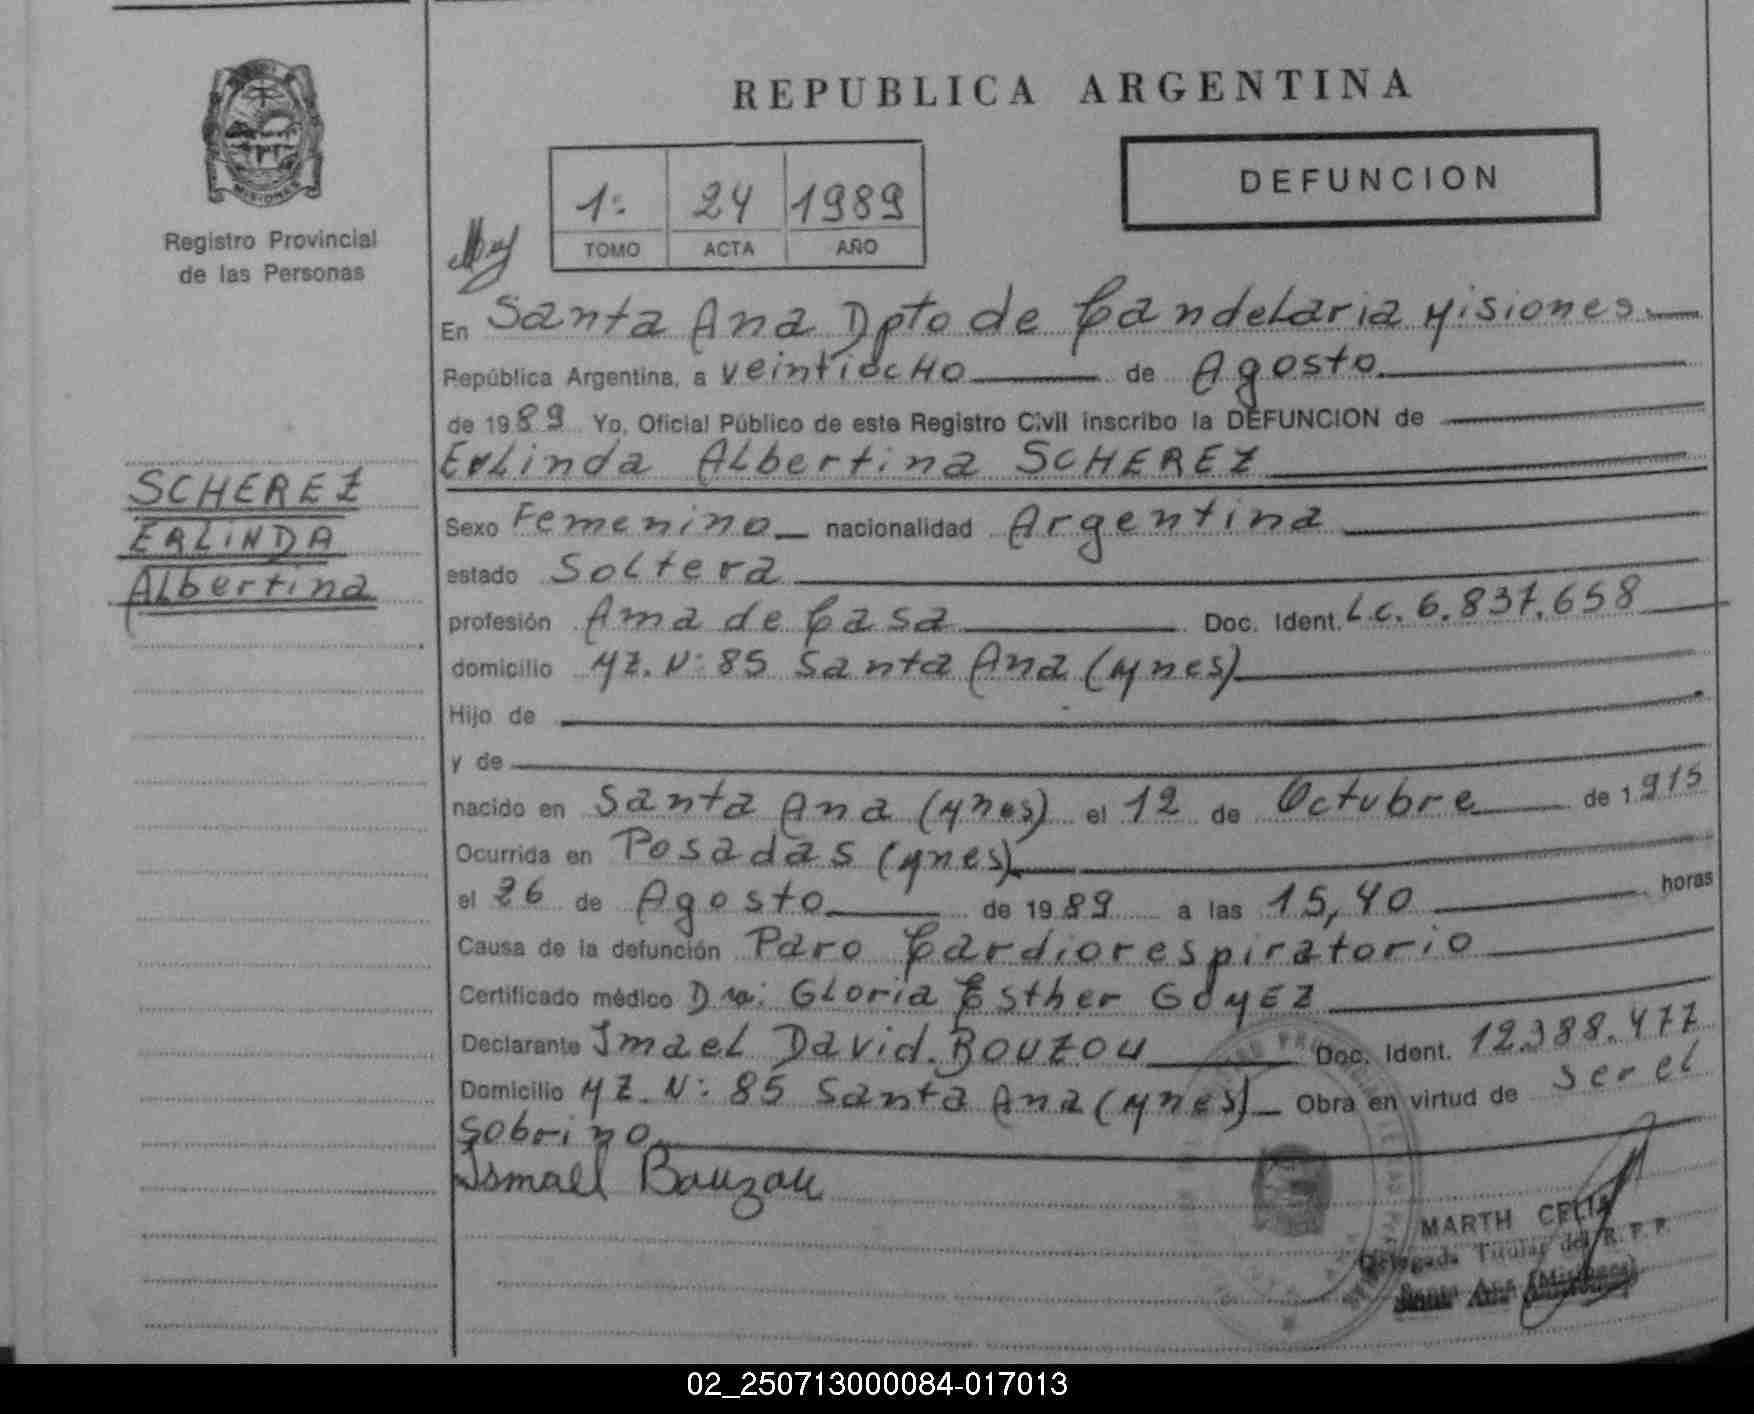 REPUBLICA ARGENTINA
MISIONES
Registro Provincial
de las Personas
1º 24 1989
TOMO ACTA AÑO
DEFUNCION
En Santa Ana Dpto de Candelaria Misiones
República Argentina, a veintiocHo de Agosto
de 1989 Yo, Oficial Público de este Registro Civil inscribo la DEFUNCION de
Erlinda Albertina SCHEREZ
SCHEREZ
ERLINDA
Albertina
Sexo Femenino nacionalidad Argentina
estado Soltera
profesión Ama de Casa Doc. Ident. L.c. 6.837.658
domicilio MZ. Nº 85 Santa Ana (Mnes)
Hijo de
y de
nacido en Santa Ana (Mnes) el 12 de Octubre de 1915
Ocurrida en Posadas (Mnes)
el 26 de Agosto de 1989 a las 15,40 horas
Causa de la defunción Paro Cardiorespiratorio
Certificado médico Dra: Gloria Esther GOMEZ
Declarante Imael David. BOUZOU Doc. Ident. 12.388.477
Domicilio MZ. Nº 85 Santa Ana (Mnes) Obra en virtud de ser el
Sobrino
Ismael Bouzou
MARTH CELIA
Delegada Titular del R. P. P.
Santa Ana (Misiones)
02_250713000084-017013